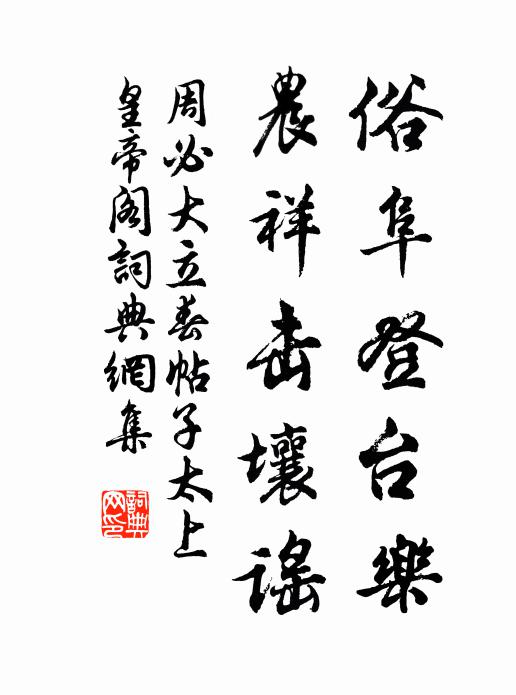 俗阜登台樂
農祥击壤謡
周必大立春帖子太上
皇帝阁詞典網集
詞典网印